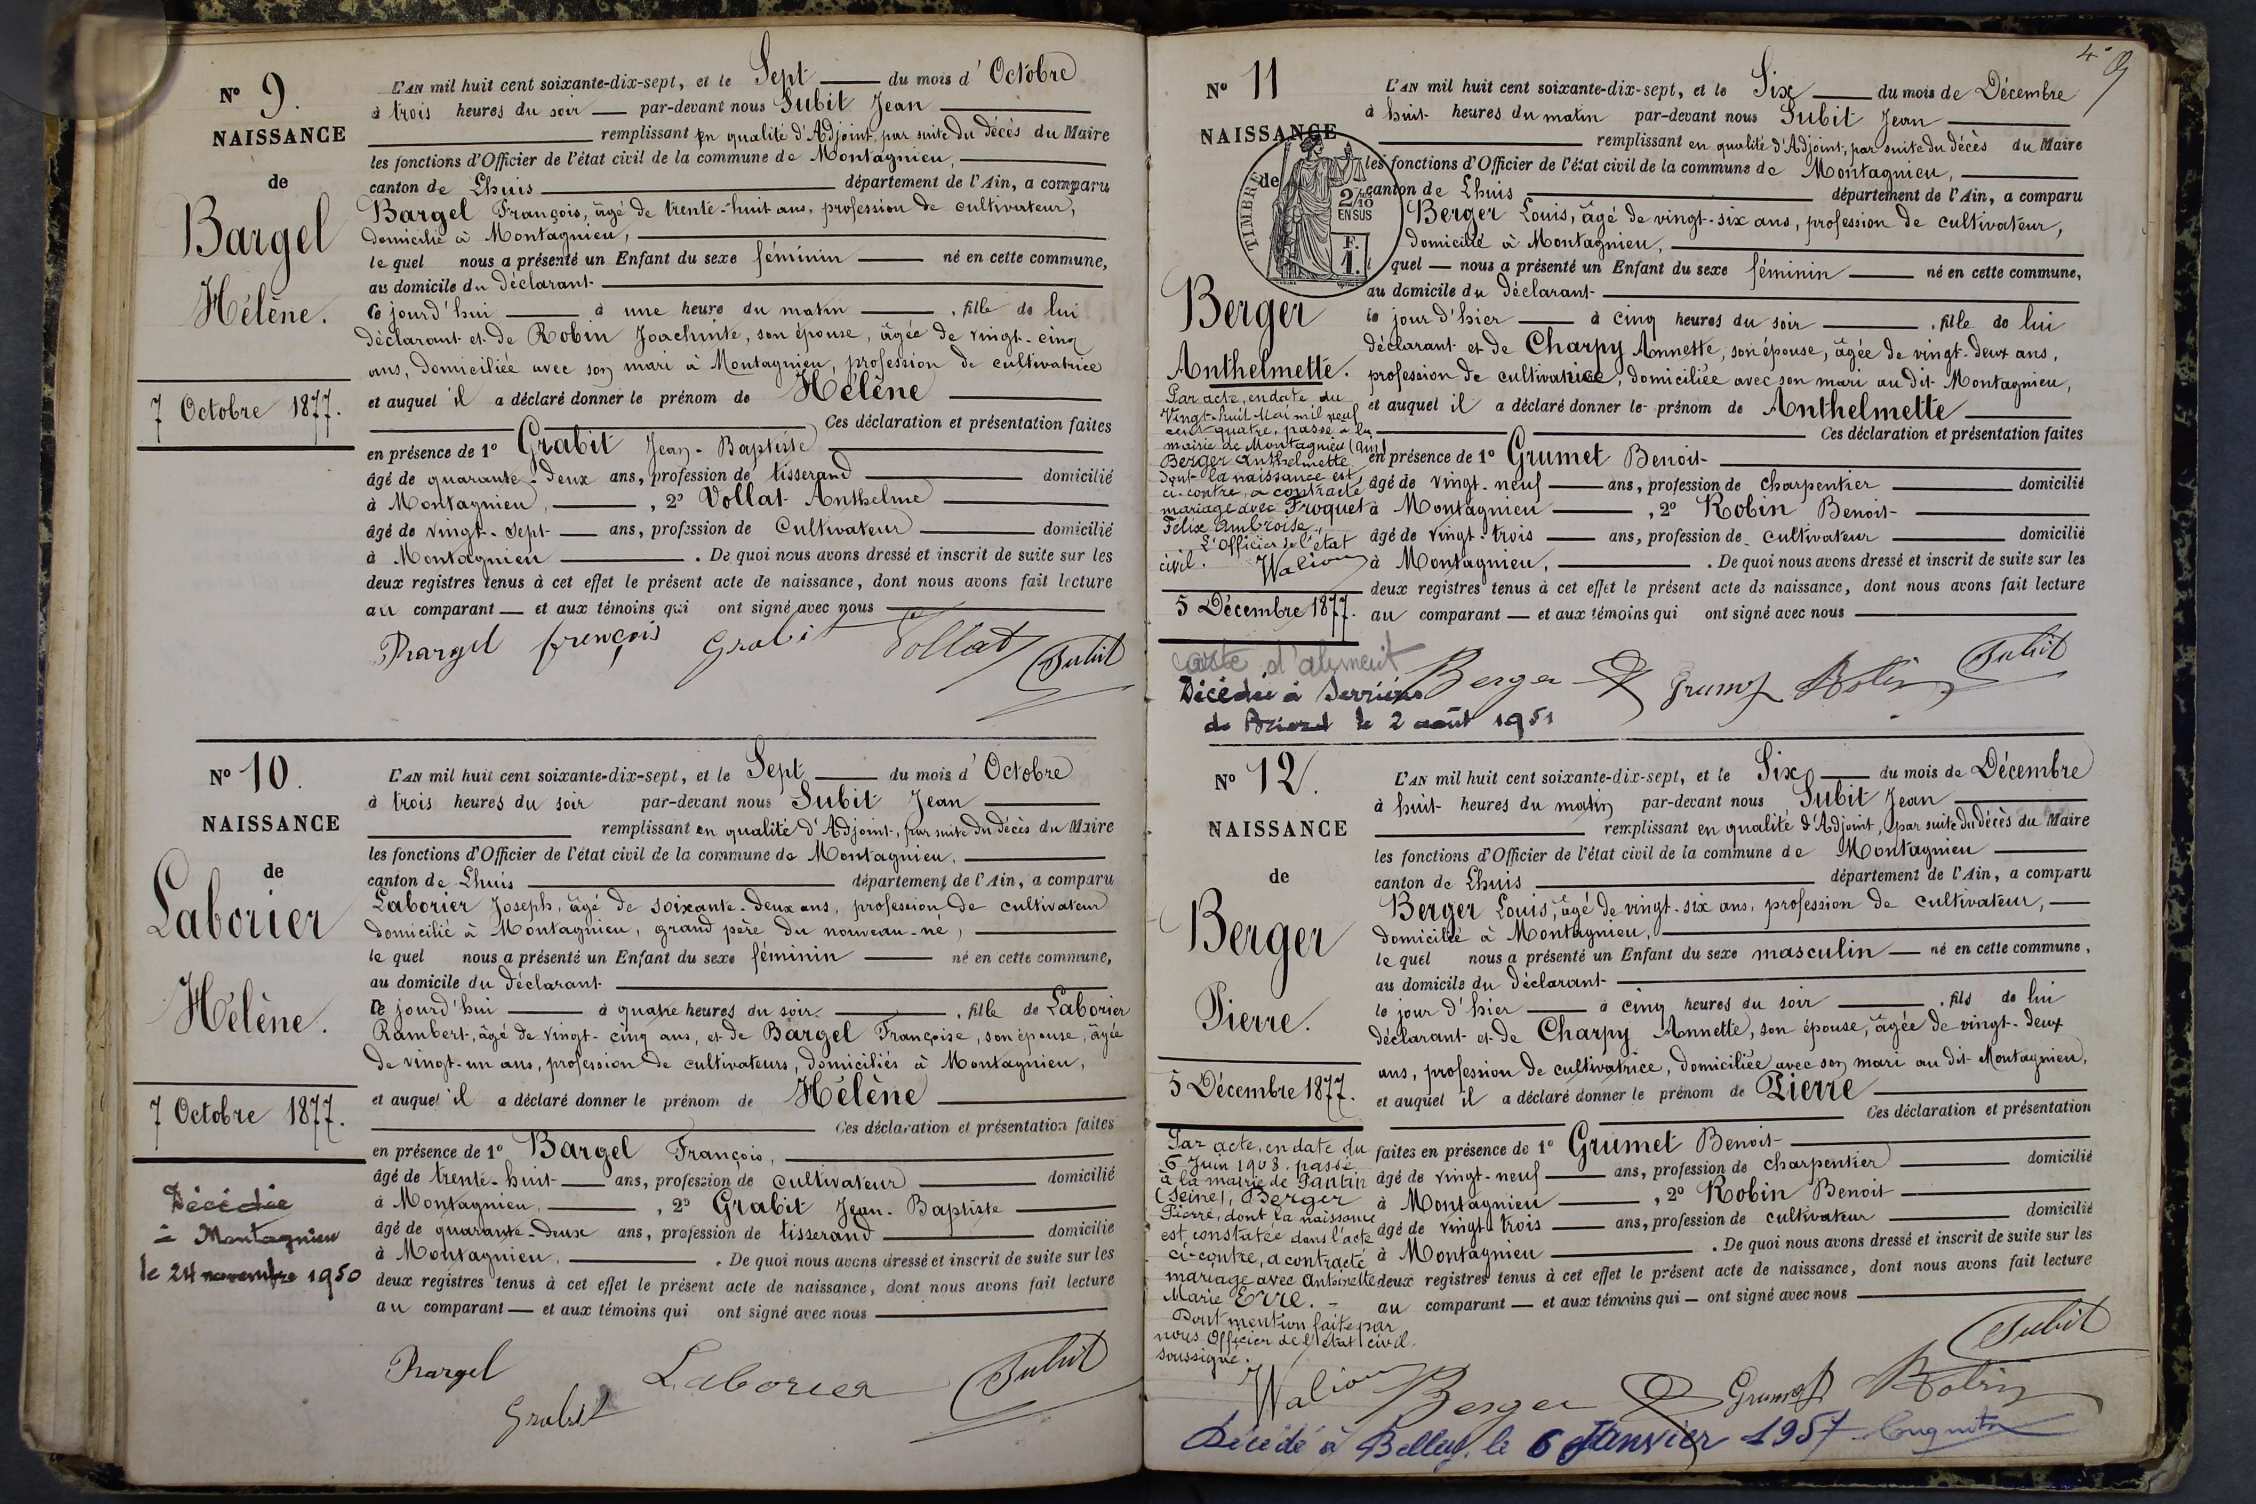 N° 9.
NAISSANCE
de
Bargel
Hélène.
7 Octobre 1877.
L'AN mil huit cent soixante-dix-sept, et le Sept du mois d'Octobre
à trois heures du soir par-devant nous Subit Jean
remplissant en qualité d'Adjoint, par suite du décès du Maire
les fonctions d'Officier de l'état civil de la commune de Montagnieu,
canton de Lhuis département de l'Ain, a comparu
Bargel François, âgé de trente-huit ans, profession de cultivateur,
domicilié à Montagnieu,
le quel nous a présenté un Enfant du sexe féminin né en cette commune,
au domicile du déclarant
ce jourd'hui à une heure du matin, fille de lui
déclarant et de Robin Joachinte, son épouse, âgée de vingt-cinq
ans, domiciliée avec son mari à Montagnieu, profession de cultivatrice
et auquel il a déclaré donner le prénom de Hélène
Ces déclaration et présentation faites
en présence de 1° Grabit Jean-Baptiste
âgé de quarante-deux ans, profession de tisserand domicilié
à Montagnieu, 2° Vollat Anthelme
âgé de vingt-sept ans, profession de Cultivateur domicilié
à Montagnieu. De quoi nous avons dressé et inscrit de suite sur les
deux registres tenus à cet effet le présent acte de naissance, dont nous avons fait lecture
au comparant et aux témoins qui ont signé avec nous
Bargel françois Grabit Vollat Subit
N° 10.
NAISSANCE
de
Laborier
Hélène.
7 Octobre 1877.
Décédée
à Montagnieu
le 24 novembre 1950
L'AN mil huit cent soixante-dix-sept, et le Sept du mois d'Octobre
à trois heures du soir par-devant nous Subit Jean
remplissant en qualité d'Adjoint, par suite du décès du Maire
les fonctions d'Officier de l'état civil de la commune de Montagnieu,
canton de Lhuis département de l'Ain, a comparu
Laborier Joseph, âgé de soixante-deux ans, profession de cultivateur
domicilié à Montagnieu, grand père du nouveau-né,
le quel nous a présenté un Enfant du sexe féminin né en cette commune,
au domicile du déclarant
ce jourd'hui à quatre heures du soir, fille de Laborier
Rambert, âgé de vingt-cinq ans, et de Bargel Françoise, son épouse, âgée
de vingt-un ans, profession de cultivateurs, domiciliés à Montagnieu,
et auquel il a déclaré donner le prénom de Hélène
Ces déclaration et présentation faites
en présence de 1° Bargel François,
âgé de trente-huit ans, profession de cultivateur domicilié
à Montagnieu, 2° Grabit Jean-Baptiste
âgé de quarante-deux ans, profession de tisserand domicilié
à Montagnieu. De quoi nous avons dressé et inscrit de suite sur les
deux registres tenus à cet effet le présent acte de naissance, dont nous avons fait lecture
au comparant et aux témoins qui ont signé avec nous
Bargel Grabit Laborier Subit
N° 11
NAISSANCE
de
TIMBRE
2/10
EN SUS
F.
1.
Berger
Anthelmette.
Par acte, en date du
Vingt-huit Mai mil neuf
cent quatre, passé à la
mairie de Montagnieu (Ain)
Berger Anthelmette
dont la naissance est
ci-contre, a contracté
mariage avec Froquet
Félix Ambroise.
L'Officier de l'état
civil.
5 Décembre 1877.
carte d'aliment
Décédée à Serrières
de Briord le 2 août 1951
L'AN mil huit cent soixante-dix-sept, et le Six du mois de Décembre
à huit heures du matin par-devant nous Subit Jean
remplissant en qualité d'Adjoint, par suite du décès du Maire
les fonctions d'Officier de l'état civil de la commune de Montagnieu,
canton de Lhuis département de l'Ain, a comparu
Berger Louis, âgé de vingt-six ans, profession de cultivateur,
domicilié à Montagnieu,
l quel nous a présenté un Enfant du sexe féminin né en cette commune,
au domicile du déclarant
le jour d'hier à cinq heures du soir, fille de lui
déclarant et de Charpy Annette, son épouse, âgée de vingt-deux ans,
profession de cultivatrice, domiciliée avec son mari au dit Montagnieu,
et auquel il a déclaré donner le prénom de Anthelmette
Ces déclaration et présentation faites
en présence de 1° Grumet Benoit
âgé de vingt-neuf ans, profession de charpentier domicilié
à Montagnieu, 2° Robin Benoit
âgé de vingt-trois ans, profession de cultivateur domicilié
à Montagnieu,. De quoi nous avons dressé et inscrit de suite sur les
deux registres tenus à cet effet le présent acte de naissance, dont nous avons fait lecture
au comparant et aux témoins qui ont signé avec nous
Berger Grumet Robin Subit
N° 12.
NAISSANCE
de
Berger
Pierre.
5 Décembre 1877.
Par acte, en date du
6 Juin 1908, passé
à la mairie de Pantin
(Seine), Berger
Pierre, dont la naissance
est constatée dans l'acte
ci-contre, a contracté
mariage avec Antoinette
Marie Erre.
Dont mention faite par
nous Officier de l'état civil
soussigné.
L'AN mil huit cent soixante-dix-sept, et le Six du mois de Décembre
à huit heures du matin par-devant nous Subit Jean
remplissant en qualité d'Adjoint, par suite du décès du Maire
les fonctions d'Officier de l'état civil de la commune de Montagnieu
canton de Lhuis département de l'Ain, a comparu
Berger Louis, âgé de vingt-six ans, profession de cultivateur,
domicilié à Montagnieu,
le quel nous a présenté un Enfant du sexe masculin né en cette commune,
au domicile du déclarant
le jour d'hier à cinq heures du soir, fils de lui
déclarant et de Charpy Annette, son épouse, âgée de vingt-deux
ans, profession de cultivatrice, domiciliée avec son mari au dit Montagnieu,
et auquel il a déclaré donner le prénom de Pierre
Ces déclaration et présentation
faites en présence de 1° Grumet Benoit
âgé de vingt-neuf ans, profession de charpentier domicilié
à Montagnieu, 2° Robin Benoit
âgé de vingt-trois ans, profession de cultivateur domicilié
à Montagnieu. De quoi nous avons dressé et inscrit de suite sur les
deux registres tenus à cet effet le présent acte de naissance, dont nous avons fait lecture
au comparant et aux témoins qui ont signé avec nous
Berger Grumet Robin Subit
Décédé à Belley, le 6 Janvier 1957